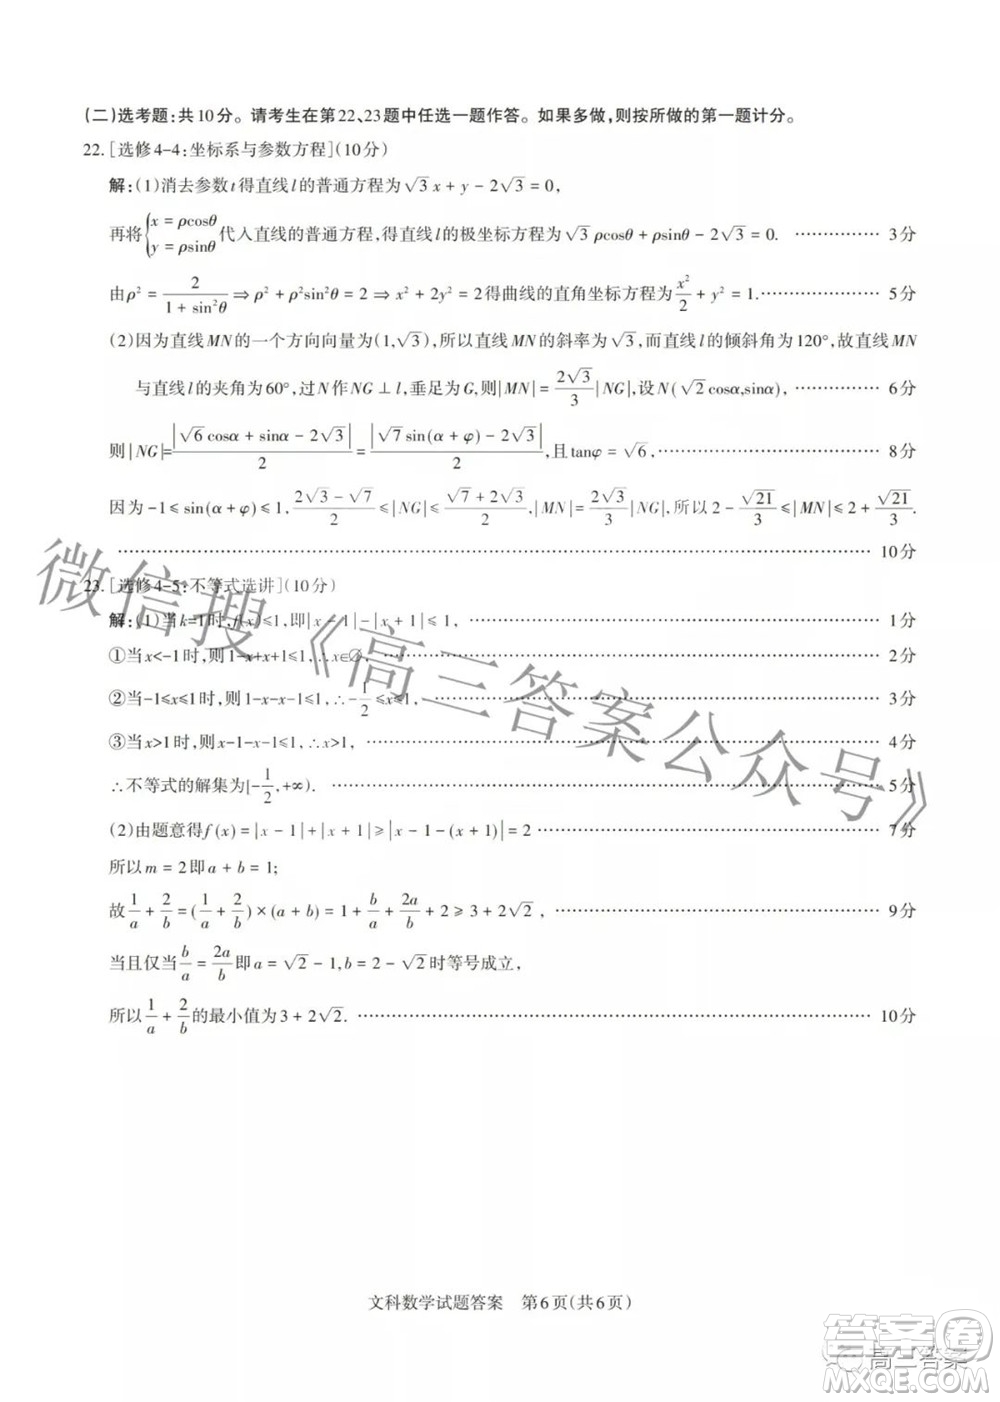 (二)选考题:共10分。请考生在第22、23题中任选一题作答。如果多做,则按所做的第一题计分。
22.[选修4-4:坐标系与参数方程](10分)
解:(1)消去参数t得直线l的普通方程为√3x+y-2√3=0,
再将{x=ρcosθ y=ρsinθ代入直线的普通方程,得直线l的极坐标方程为√3ρcosθ+ρsinθ-2√3=0. ………… 3分
由ρ²=2/(1+sin²θ)⇒ρ²+ρ²sin²θ=2⇒x²+2y²=2得曲线的直角坐标方程为x²/2+y²=1.………… 5分
(2)因为直线MN的一个方向向量为(1,√3),所以直线MN的斜率为√3,而直线l的倾斜角为120°,故直线MN
与直线l的夹角为60°,过N作NG⊥l,垂足为G,则|MN|=2√3/3|NG|,设N(√2cosα,sinα),………… 6分
则|NG|=|√6cosα+sinα-2√3|/2=|√7sin(α+φ)-2√3|/2,且tanφ=√6,………… 8分
因为-1≤sin(α+φ)≤1,(2√3-√7)/2≤|NG|≤(√7+2√3)/2,|MN|=2√3/3|NG|,所以2-√21/3≤|MN|≤2+√21/3.
………… 10分
23.[选修4-5:不等式选讲](10分)
解:(1)当k=1时,f(x)≤1,即|x-1|-|x+1|≤1,………… 1分
①当x<-1时,则1-x+x+1≤1,∴x∈∅,………… 2分
②当-1≤x≤1时,则1-x-x-1≤1,∴-1/2≤x≤1,………… 3分
③当x>1时,则x-1-x-1≤1,∴x>1,………… 4分
∴不等式的解集为[-1/2,+∞).………… 5分
(2)由题意得f(x)=|x-1|+|x+1|≥|x-1-(x+1)|=2………… 7分
所以m=2即a+b=1;
故1/a+2/b=(1/a+2/b)×(a+b)=1+b/a+2a/b+2≥3+2√2,………… 9分
当且仅当b/a=2a/b即a=√2-1,b=2-√2时等号成立,
所以1/a+2/b的最小值为3+2√2.………… 10分
微信搜《高三答案公众号》
文科数学试题答案 第6页(共6页)
答案圈
高三答案
MXQE.COM